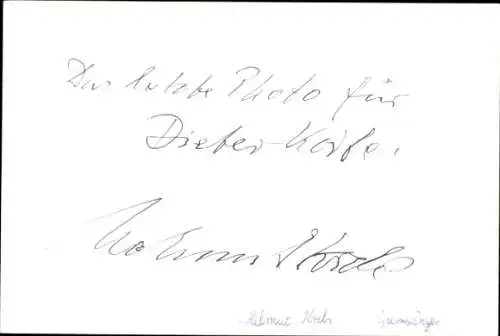 Das letzte Photo für
Dieter Korfe.
Helmut Krebs
Helmut Krebs